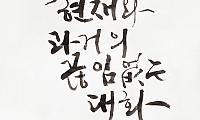 현재와
과거의
끊임없는
대화